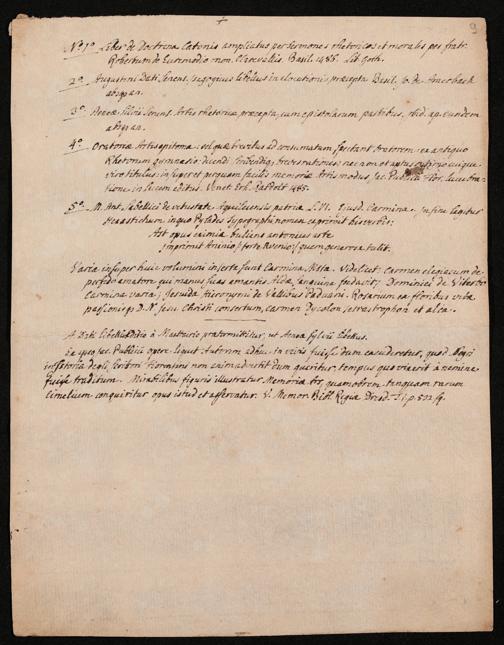 9
Nº 1º Liber de Doctrina Catonis ampliatus per sermones rhetoricos et moralis per fratr.
Robertum de Euremodio mon. Clarevallis Basil. 1486. Lit. Goth.
2º Augustini Dati, Senens. Isagogicus libellus in elocutionis præcepta Basil. Io. de Amerbach
absq. an.
3º Aeneæ Silvii Senens. Artis rhetoricæ præcepta, cum epistolarum partibus. ibid. ap. eundem
absq. an.
4º Oratoriæ Artis epitoma: vel quæ brevibus ad consumatum spectant Oratorem: ex antiquo
Rhetorum gymnasio: dicendi scribendiq; breves rationes: nec non et aptus cuiq;
viro titulus: insuper et perquam facilis memoriæ Artis modus, Jac. Publicii Flor. lucubra-
tione in lucem editus. Venet. Erh. Ratdolt 1485.
5º M. Ant. Sabellici de vetustate Aquileiensis patriæ L. VI. Eiusd. Carmina. In fine legitur
Hexastichum in quo Pyladis Typographi nomen exprimit his versib;:
Ast opus eximia
impressit Avinio, forte
Varia insuper huic volumini inserta sunt Carmina. Videlicet: Carmen elegiacum de
perfido amatore qui manus suas amantis Aldæ sanguine fœdavit; Dominici de Viterbo
Carmina varia; Jesuida Hieronymi de Vallibus Paduani. Rosarium ex floribus vitæ
passionisq; D. N. Jesu Christi consertum, carmen Dycolon tetrastrophon et alia.
A Dati Libelli Editio à Maittairio prætermittitur, ut Aeneæ Sylvii Libellus.
Ex quo Jac. Publicii opere liquet Autorem adhuc in vivis fuisse dum excuderetur, quod
Scriptores Florentini non animadvertit dum queritur, tempus quo vixerit à nemine
fuisse traditum. Mirabilibus figuris illustratur Memoria Ars quamobrem tanquam rarum
cimelium conquiritur opus istud et asservatur. V. Memor. Bibl. Regiæ Dresd. T. I. p. 502 sq.